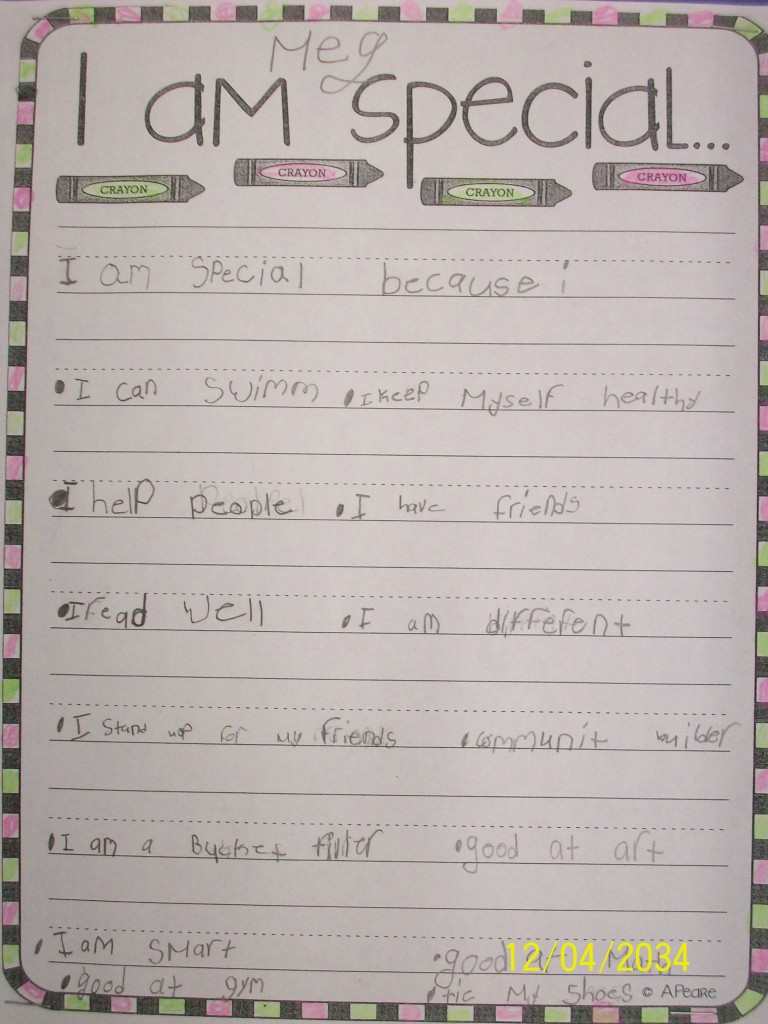 Meg
I am special...
CRAYON CRAYON CRAYON CRAYON
I am special because i
• I can swimm • I keep myself healthy
• I help people • I have friends
• I read well • I am different
• I stand up for my friends • communit builder
• I am a Bucket filler • good at art
• I am smart • good at 12/04/2034
• good at gym • tie my shoes © APeare